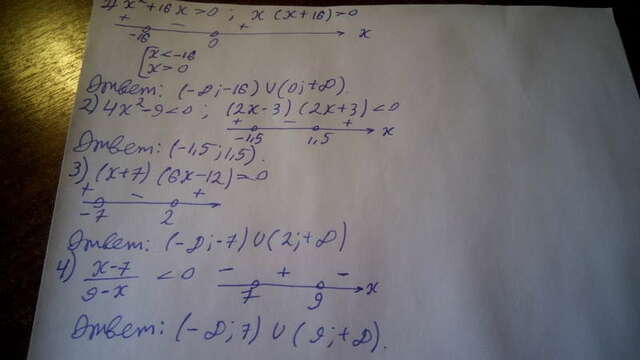 1) x²+16x>0 ; x(x+16)>0
+ − +
-16 0 x
[x<-16
x>0
Ответ: (-∞;-16)∪(0;+∞).
2) 4x²-9<0 ; (2x-3)(2x+3)<0
+ − + x
-1,5 1,5
Ответ: (-1,5;1,5).
3) (x+7)(6x-12)>0
+ − +
-7 2
Ответ: (-∞;-7)∪(2;+∞)
4) x-7 / 9-x <0
− + −
7 9 x
Ответ: (-∞;7)∪(9;+∞).